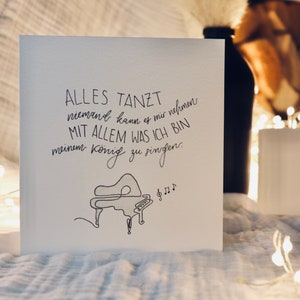 ALLES TANZT
niemand kann es mir nehmen
MIT ALLEM WAS ICH BIN
meinem König zu singen.